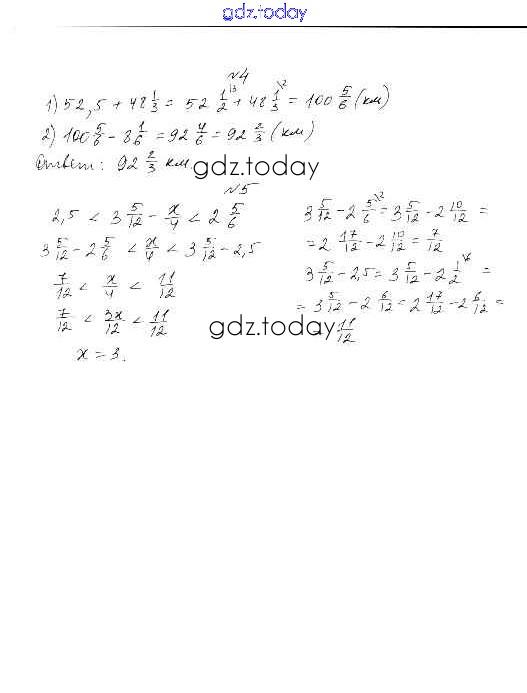 gdz.today
№4
1) 52,5 + 48 1/3 = 52 1/2 + 48 1/3 = 100 5/6 (км)
2) 100 5/6 - 8 1/6 = 92 4/6 = 92 2/3 (км)
Ответ: 92 2/3 км.
gdz.today
№5
2,5 < 3 5/12 - x/4 < 2 5/6
3 5/12 - 2 5/6 < x/4 < 3 5/12 - 2,5
7/12 < x/4 < 11/12
7/12 < 3x/12 < 11/12
x = 3.
3 5/12 - 2 5/6 = 3 5/12 - 2 10/12 =
= 2 17/12 - 2 10/12 = 7/12
3 5/12 - 2,5 = 3 5/12 - 2 1/2 =
= 3 5/12 - 2 6/12 = 2 17/12 - 2 6/12 =
11/12
gdz.today